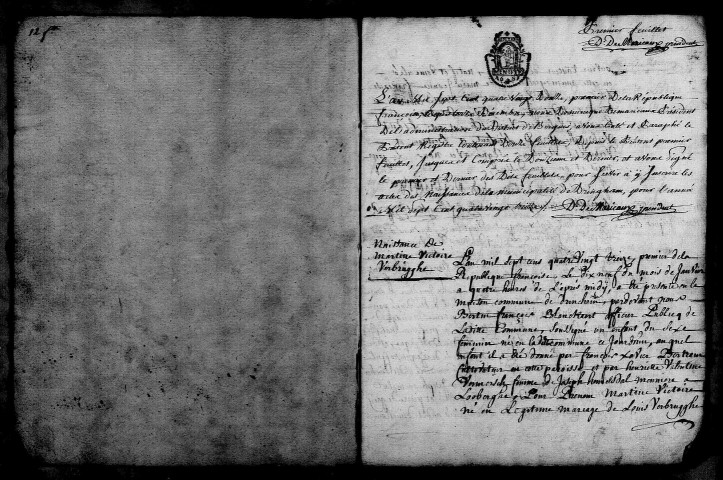 12 f
Premier feuillet
D. De Moricaux président
L'an Mil Sept Cent quatre vingt Douze, premier De la République
françoise, Décembre, nous Dominique président
De l'administration du District de Bergues, avons Cotté et Paraphé le
Présent Registre Contenant Douze feuillets, Depuis le Présent premier
feuillet, jusques et Compris le Douzieme et Dernier, et avons signé
le premier et Dernier des Dits feuillets, pour Servir à y Inscrire les
actes des Naissances de la municipalité de Dringham, pour l'année
Mil Sept Cent quatre vingt treize. D. De Moricaux président
Naissance De
Martine Victoire
Verbrugghe
L'an mil sept cens quatre vingt treize, premier de la
Republique françoise, Le Dix neuf du mois de Janvier
a quatre heures de L'après midy, a été présenté en la
maison commune de, pardevant nous
Bertin françois Blanckaert officier Publicq de
Ladite Commune, soussigné un enfant du sexe
féminin né en la dite commune ce Jourd'huy, auquel
enfant il a été donné par françois xavier
Cultivateur en cette paroisse et par henriette Valentine
femme de Joseph a
Looberghe Pour Prenom Martine Victoire
né en Légitime mariage de Louis Verbrugghe